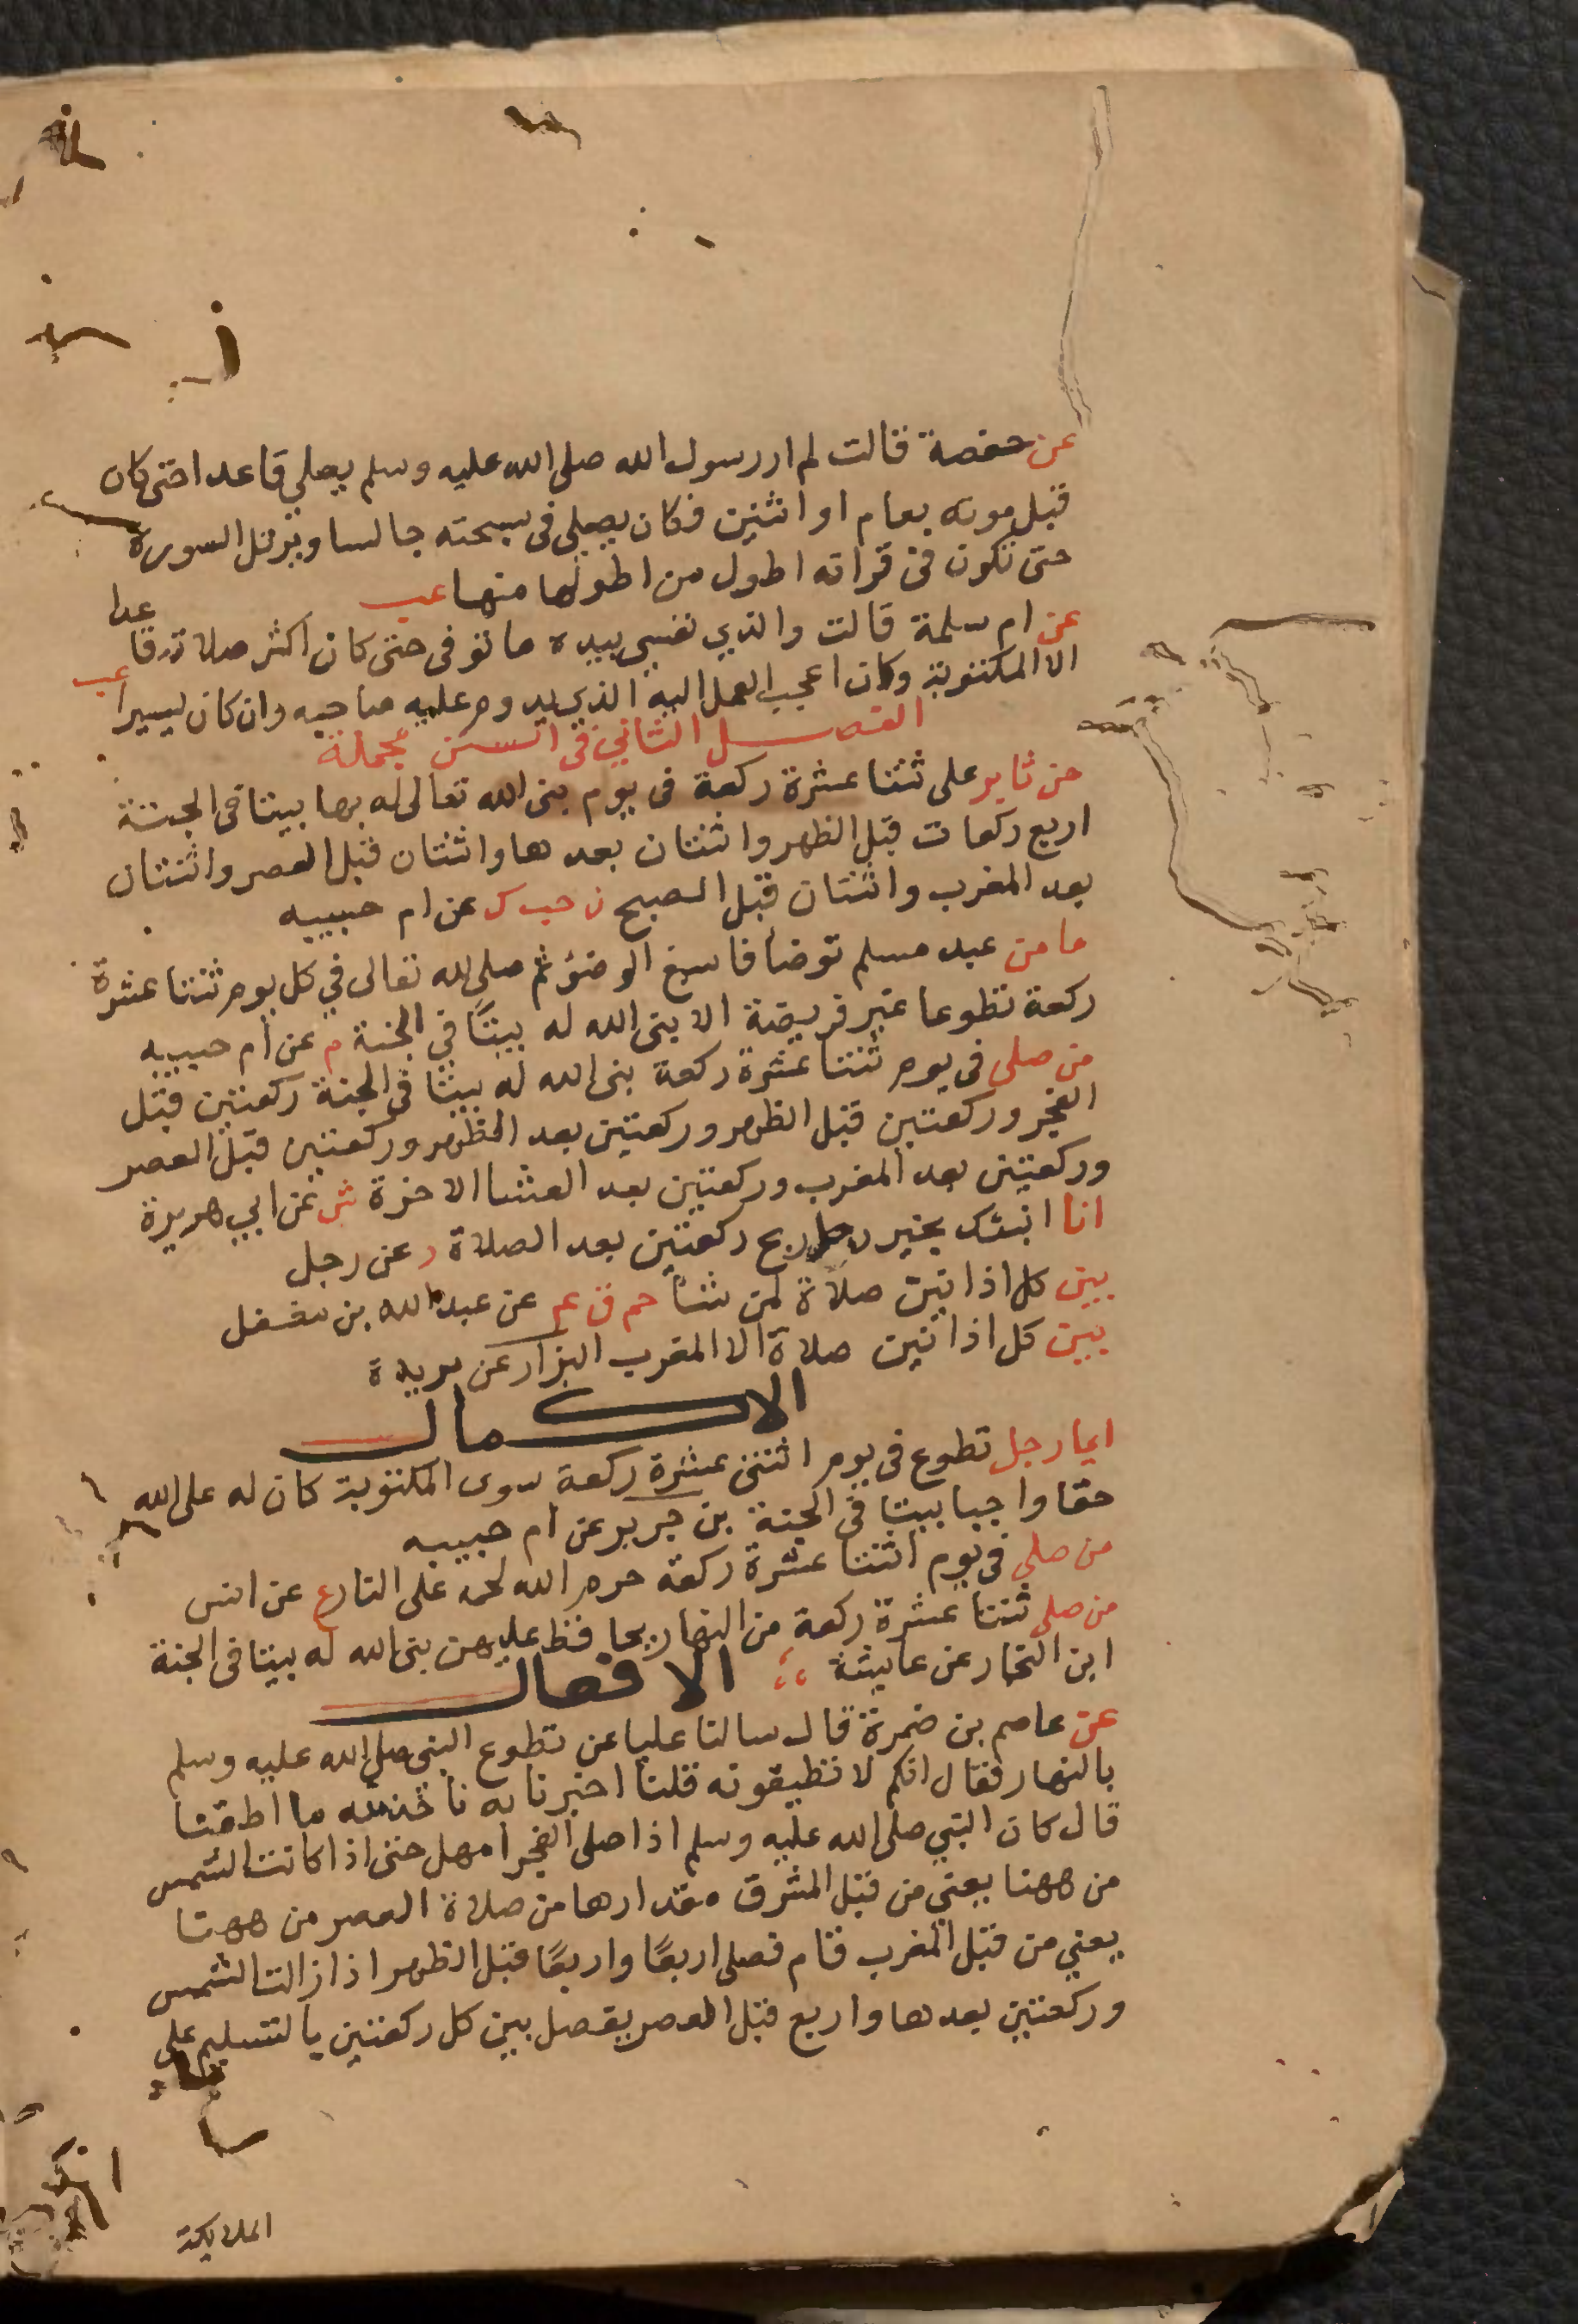 عن حفصة قالت لم ار رسول الله صلى الله عليه وسلم يصلي قاعدا حتى كان
قبل موته بعام او اثنين فكان يصلي في سبحته جالسا ويرتل السورة
حتى تكون في قراته اطول من اطولها منها عب
عن ام سلمة قالت والذي نفسي بيده ما توفى حتى كان اكثر صلاته قاعدا
الا المكتوبة وكان اعجب العمل اليه الذي يدوم عليه صاحبه وان كان يسيرا عب
الفصل الثاني في السنن مجملة
من ثابر على ثنتا عشرة ركعة في يوم بنى الله تعالى له بها بيتا في الجنة
اربع ركعات قبل الظهر واثنتان بعدها واثنتان قبل العصر واثنتان
بعد المغرب واثنتان قبل الصبح ن حب ك عن ام حبيبه
ما من عبد مسلم توضا فاسبغ الوضؤ ثم صلى لله تعالى في كل يوم ثنتا عشرة
ركعة تطوعا غير فريضة الا بنى الله له بيتًا في الجنة م عن ام حبيبه
من صلى في يوم ثنتا عشرة ركعة بنى الله له بيتا في الجنة ركعتين قبل
الفجر وركعتين قبل الظهر وركعتين بعد الظهر وركعتين قبل العصر
وركعتين بعد المغرب وركعتين بعد العشا الاخرة ش عن ابي هريرة
انا انبئك بخير رجل ربح ركعتين بعد الصلاة د عن رجل
بين كل اذانين صلاة لمن شا حم ق عم عن عبد الله بن مغفل
بين كل اذانين صلاة الا المغرب البزار عن بريدة
الاكمال
ايما رجل تطوع في يوم اثنتي عشرة ركعة سوى المكتوبة كان له على الله
حقا واجبا بيتا في الجنة بن جرير عن ام حبيبه
من صلى في يوم اثنتا عشرة ركعة حرم الله لحمه على النار ع عن انس
من صلى ثنتا عشرة ركعة من النهار يحافظ عليهن بنى الله له بيتا في الجنة
ابن النجار عن عايشة الافعال
عن عاصم بن ضمرة قال سالنا عليا عن تطوع النبي صلى الله عليه وسلم
بالنهار فقال انكم لا تطيقونه قلنا اخبرنا به ناخذ منه ما اطقنا
قال كان النبي صلى الله عليه وسلم اذا صلى الفجر امهل حتى اذا كانت الشمس
من ههنا يعني من قبل المشرق مقدارها من صلاة العصر من ههنا
يعني من قبل المغرب قام فصلى اربعًا واربعًا قبل الظهر اذا زالت الشمس
وركعتين بعدها واربع قبل العصر يفصل بين كل ركعتين بالتسليم على
الملايكة